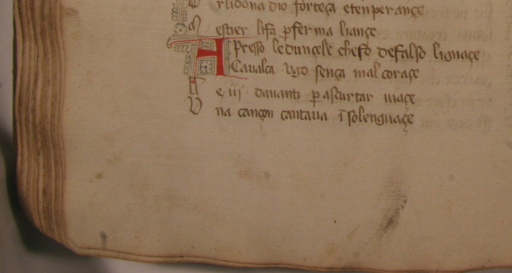 rlidona dio forteça et enperançe
A estier lisa p ferma liançe
A Presso le dungele chesd de falso lignaçe
Caualca ugo sença mal coraçe
E iii dauanti p ascurtar uiaçe
V na cançon cantaua i so lenguaçe